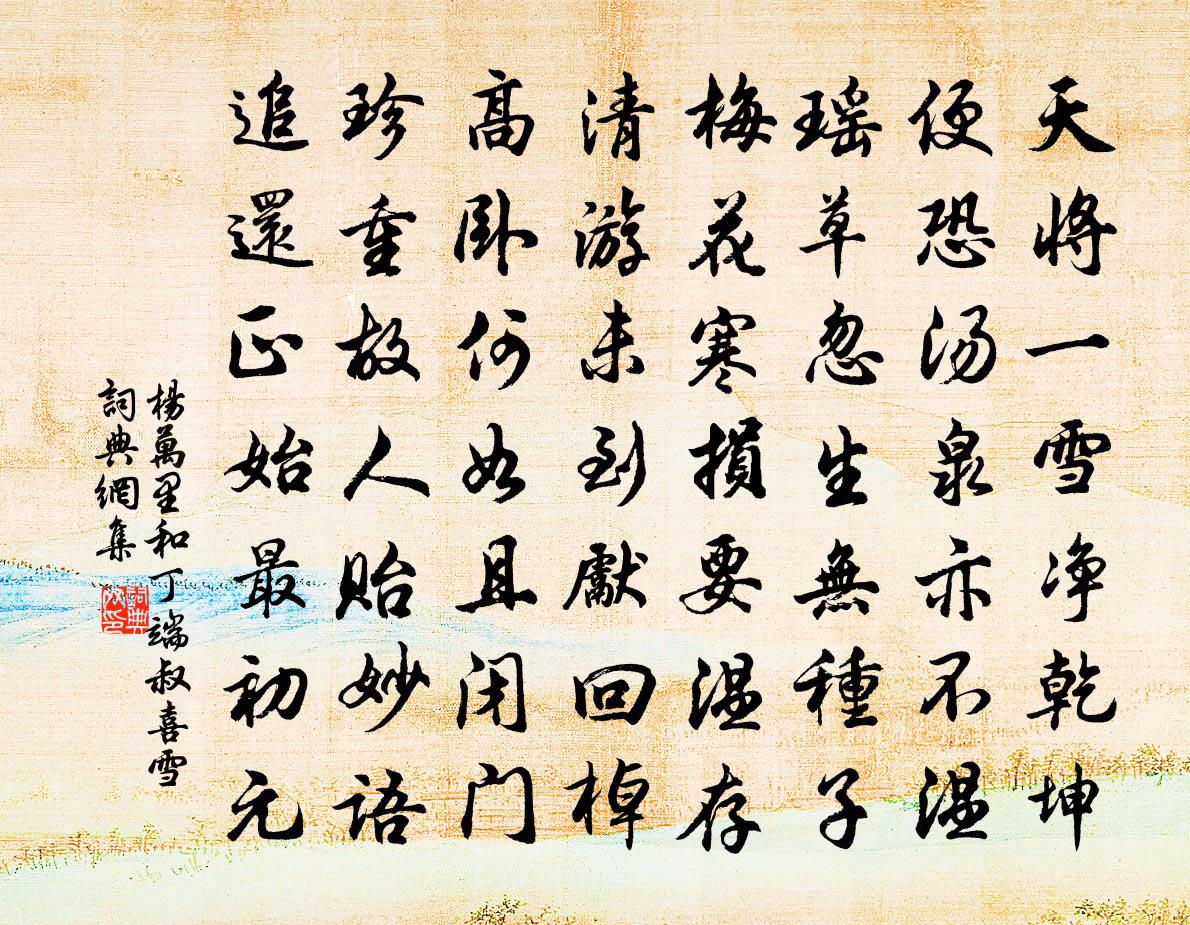 天将一雪净乾坤
便恐汤泉亦不温
瑶草忽生無種子
梅花寒損要温存
清游未到獻回棹
高卧何如且闭门
珍重故人貽妙语
追還正始最初元
楊萬里和丁端叔喜雪
詞典網集